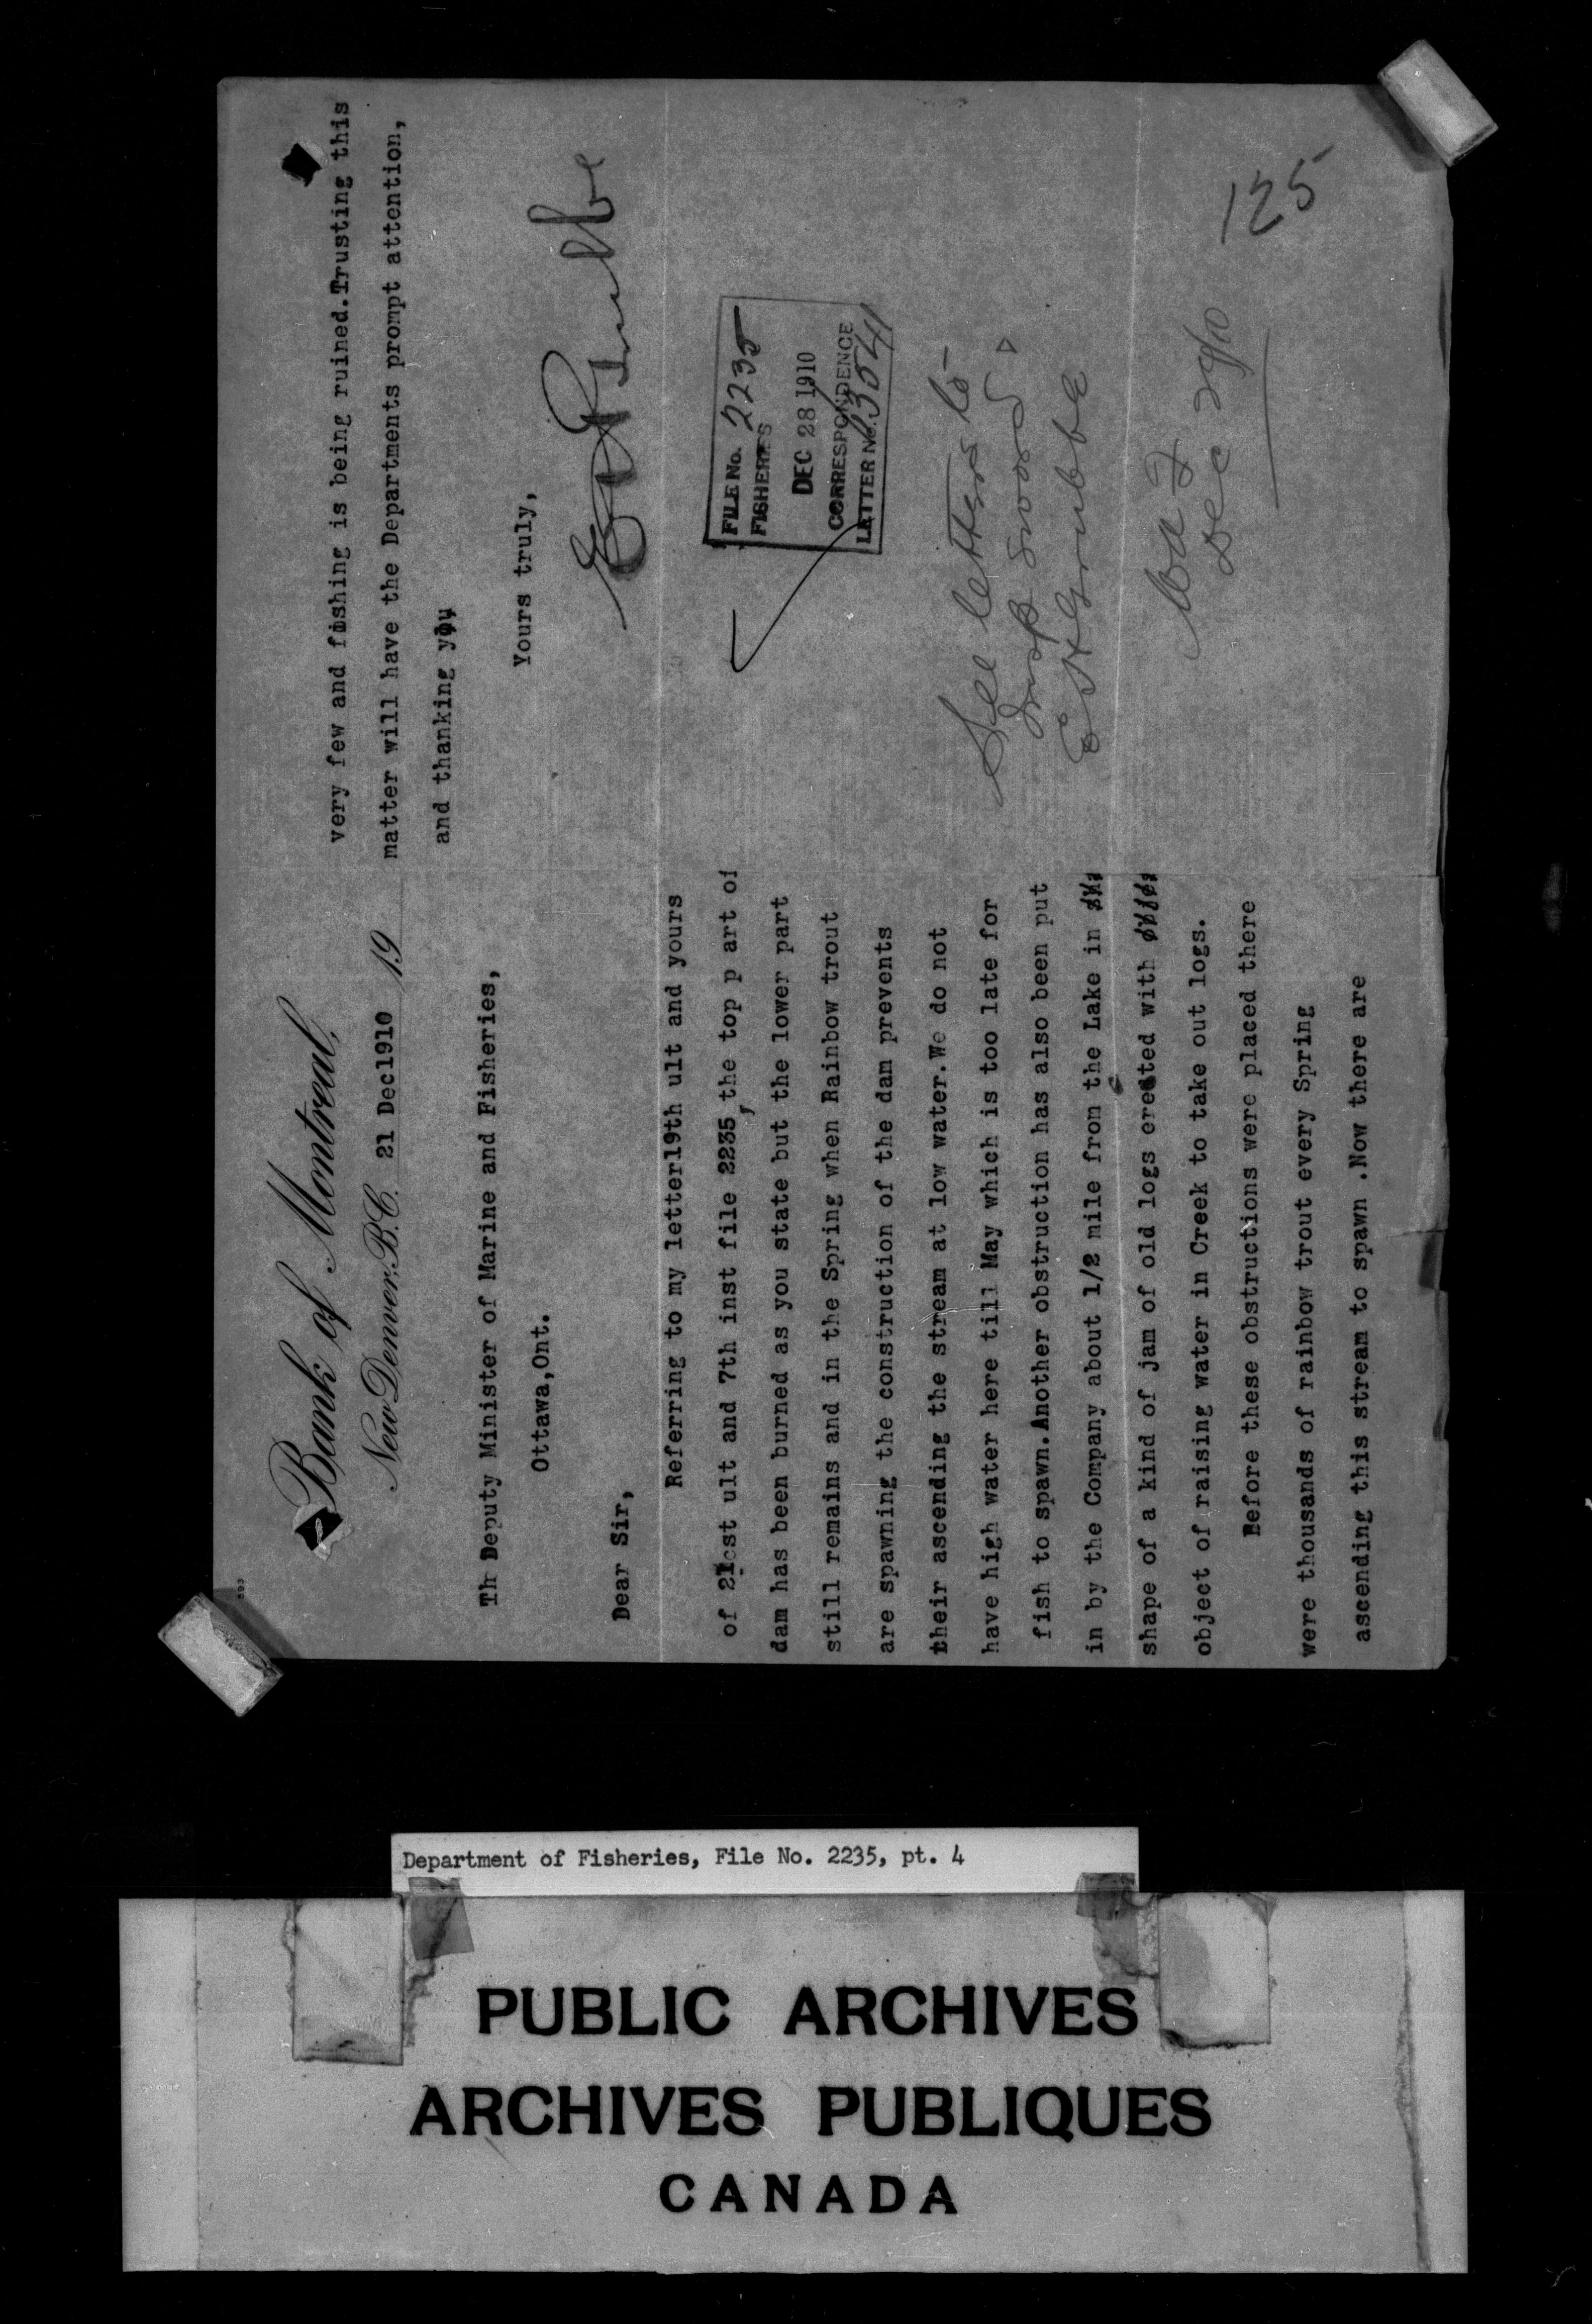 693
Bank of Montreal,
New Denver, B.C. 21 Dec1910 19
Th Deputy Minister of Marine and Fisheries,
Ottawa,Ont.
Dear Sir,
Referring to my letter19th ult and yours
of 21st ult and 7th inst file 2235,the top p art of
dam has been burned as you state but the lower part
still remains and in the Spring when Rainbow trout
are spawning the construction of the dam prevents
their ascending the stream at low water.We do not
have high water here till May which is too late for
fish to spawn.Another obstruction has also been put
in by the Company about 1/2 mile from the Lake in
shape of a kind of jam of old logs erected with
object of raising water in Creek to take out logs.
Before these obstructions were placed there
were thousands of rainbow trout every Spring
ascending this stream to spawn .Now there are
very few and fishing is being ruined.Trusting this
matter will have the Departments prompt attention,
and thanking you
Yours truly,
FILE No. 2235
FISHERIES
DEC 28 1910
CORRESPONDENCE
LETTER No.
See letters to
Insp Sword &
E H Grubbe
Dec 29/10
125
Department of Fisheries, File No. 2235, pt. 4
PUBLIC ARCHIVES
ARCHIVES PUBLIQUES
CANADA